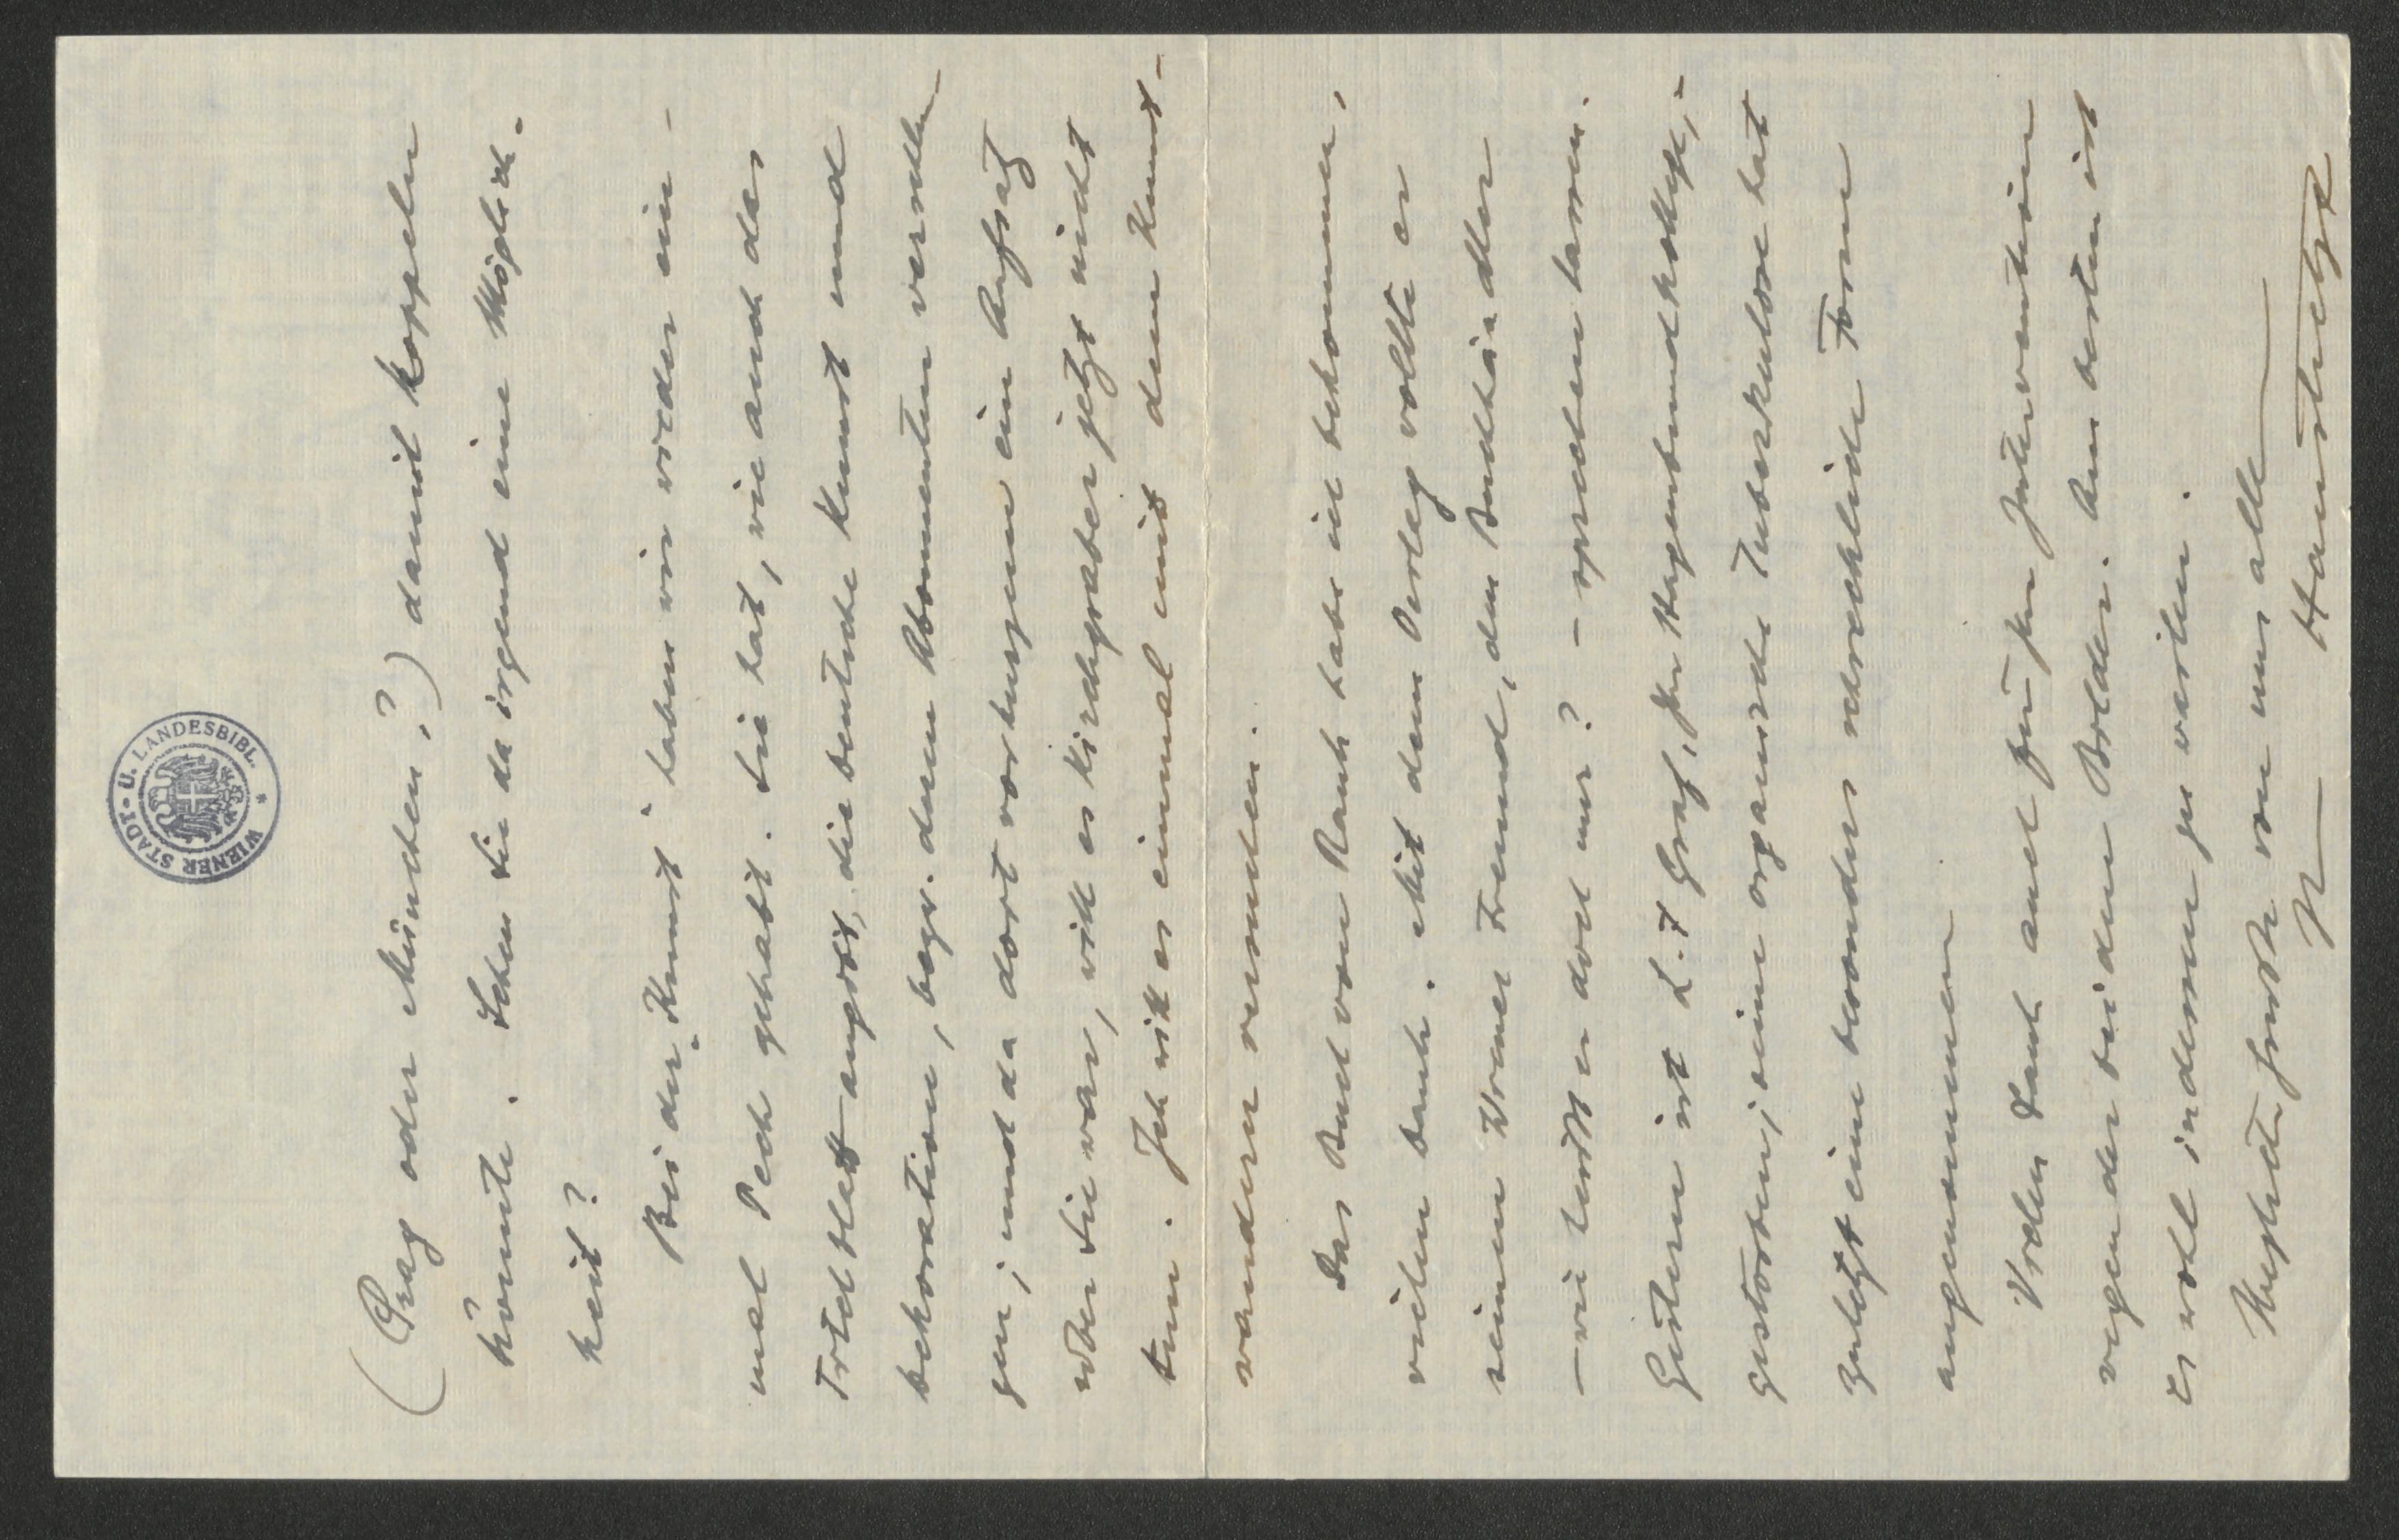 (Prag oder München?) damit koppeln
könnte. Sehen Sie da irgend eine Möglich-
keit?
Bei der „Kunst“ haben wir wieder ein-
mal Pech gehabt. Sie hat, wie auch das
dieb deutsche Kunst und
Dekoration, bezw. deren Abonnenten
gen; und da dort vor kurzem ein Aufsatz
über Sie war, will es Kirchgraber jetzt nicht
tun. Ich will es einmal mit dem Kunst-
wanderer versuchen.
Das Buch von Rank habe ich bekommen,
vielen Dank. Mit dem Verlag wollte er
seinen Wiener Freund, den Buchhändler
– wie heißt er doch nur? – sprechen lassen.
Gestern ist L. H. Graf, der
gestorben; seine organische Tuberkulose hat
zuletzt eine besonders schreckliche Form
angenommen
Vielen Dank auch für Ihre Intervention
wegen der beiden Bilder. Am besten ist
es wohl indessen zu warten.
Herzliche Grüße von uns allen